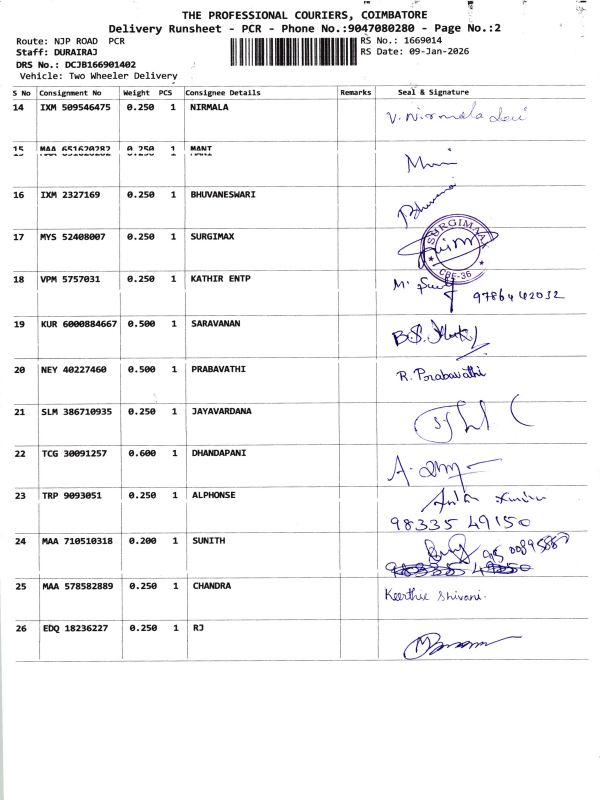 THE PROFESSIONAL COURIERS, COIMBATORE
Delivery Runsheet - PCR - Phone No.:9047080280 - Page No.:2
Route: NJP ROAD PCR RS No.: 1669014
Staff: DURAIRAJ RS Date: 09-Jan-2026
DRS No.: DCJB166901402
Vehicle: Two Wheeler Delivery
S No Consignment No Weight PCS Consignee Details Remarks Seal & Signature
14 IXM 509546475 0.250 1 NIRMALA V. Nirmala devi
15 MAA 651620282 0.250 1 MANI
16 IXM 2327169 0.250 1 BHUVANESWARI
17 MYS 52408007 0.250 1 SURGIMAX
SURGIMAX
CBE-36
18 VPM 5757031 0.250 1 KATHIR ENTP
9786442032
19 KUR 6000884667 0.500 1 SARAVANAN
20 NEY 40227460 0.500 1 PRABAVATHI R. Prabavathi
21 SLM 386710935 0.250 1 JAYAVARDANA
22 TCG 30091257 0.600 1 DHANDAPANI
23 TRP 9093051 0.250 1 ALPHONSE
98335 49150
24 MAA 710510318 0.200 1 SUNITH
25 MAA 578582889 0.250 1 CHANDRA Keerthie Shivani.
26 EDQ 18236227 0.250 1 RJ